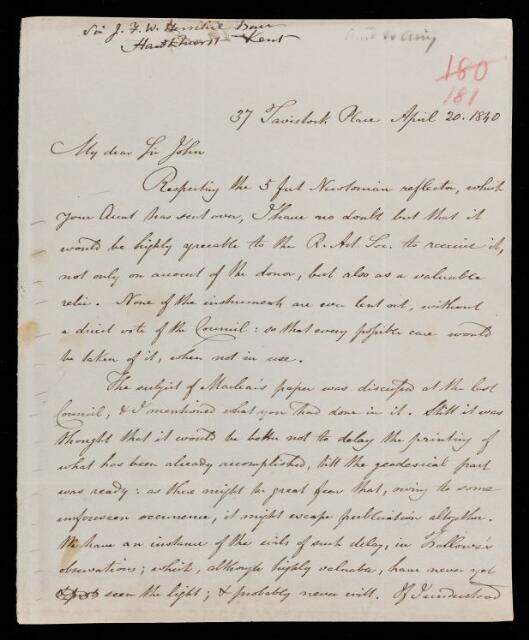 Sir J. F. W. Herschel Bart
Hawkhurst Kent
180
181
37 Tavistock Place April 20. 1840
My dear Sir John
Respecting the 5 feet Newtonian reflector, which
your Aunt has sent over, I have no doubt but that it
would be highly agreeable to the R. Ast. Soc. to receive it,
not only on account of the donor, but also as a valuable
relic. None of the instruments are ever lent out, without
a direct vote of the Council: so that every possible care would
be taken of it, when not in use.
The subject of Maclear's paper was discussed at the last
Council, & I mentioned what you had done in it. Still it was
thought that it would be better not to delay the printing of
what has been already accomplished, till the geodesical part
was ready: as there might be great fear that, owing to some
unforeseen occurrence, it might escape publication altogether.
We have an instance of the evils of such delay, in Fallows's
observations; which, although highly valuable, have never yet
seen the light; & probably never will. If I understood